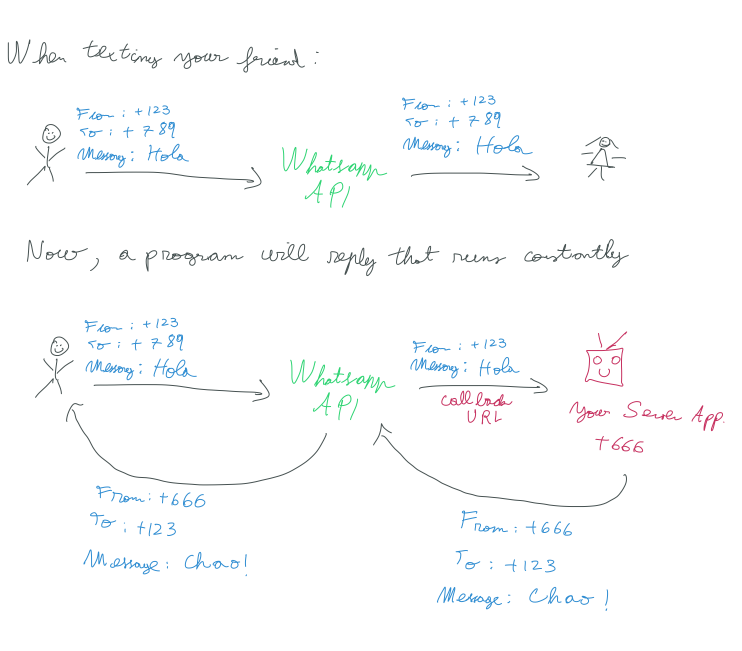 When texting your friend:
From: +123
To: +789
Message: Hola
Whatsapp
API
From: +123
To: +789
Message: Hola
Now, a program will reply that runs constantly
From: +123
To: +789
Message: Hola
Whatsapp
API
From: +123
Message: Hola
callback
URL
Your Server App.
+666
From: +666
To: +123
Message: Chao!
From: +666
To: +123
Message: Chao!